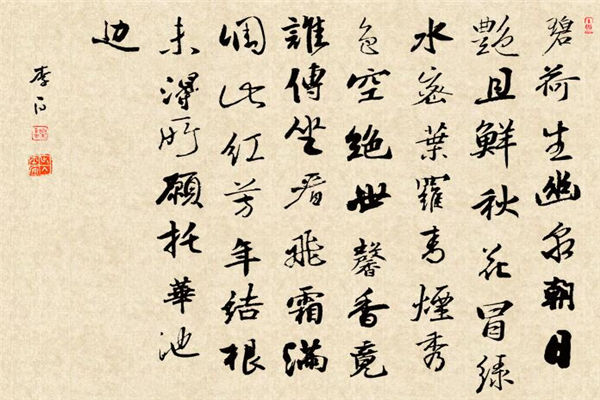 碧荷生幽泉朝日
艷且鮮秋花冒綠
水密葉羅青煙秀
色空絕世馨香竟
誰傳坐看飛霜滿
凋此紅芳年結根
未得所願托華池
边
李白